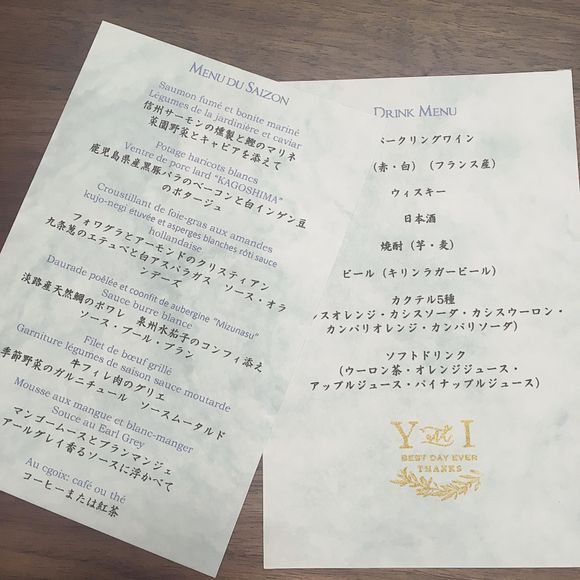 MENU DU SAIZON
Saumon fumé et bonite mariné
Légumes de la jardinière et caviar
信州サーモンの燻製と鰹のマリネ
菜園野菜とキャビアを添えて
Potage haricots blancs
Ventre de porc lard "KAGOSHIMA"
鹿児島県産黒豚バラのベーコンと白インゲン豆
のポタージュ
Croustillant de foie-gras aux amandes
kujo-negi étuvée et asperges blanches rôti sauce
hollandaise
フォワグラとアーモンドのクリスティアン
九条葱のエテュベと白アスパラガス ソース・オラ
ンデーズ
Daurade poêlée et coonfit de aubergine "Mizunasu"
Sauce burre blanc
淡路産天然鯛のポワレ 泉州水茄子のコンフィ添え
ソース・ブール・ブラン
Filet de bœuf grillé
Garniture légumes de saison sauce moutarde
牛フィレ肉のグリエ
季節野菜のガルニチュール ソースムータルド
Mousse aux mangue et blanc-manger
Souce au Earl Grey
マンゴームースとブランマンジェ
アールグレイ香るソースに浮かべて
Au cgoix: café ou thé
コーヒーまたは紅茶
DRINK MENU
パークリングワイン
(赤・白)(フランス産)
ウィスキー
日本酒
焼酎(芋・麦)
ビール(キリンラガービール)
カクテル5種
スオレンジ・カシスソーダ・カシスウーロン・
カンパリオレンジ・カンパリソーダ)
ソフトドリンク
(ウーロン茶・オレンジジュース・
アップルジュース・パイナップルジュース)
Y and I
BEST DAY EVER
THANKS